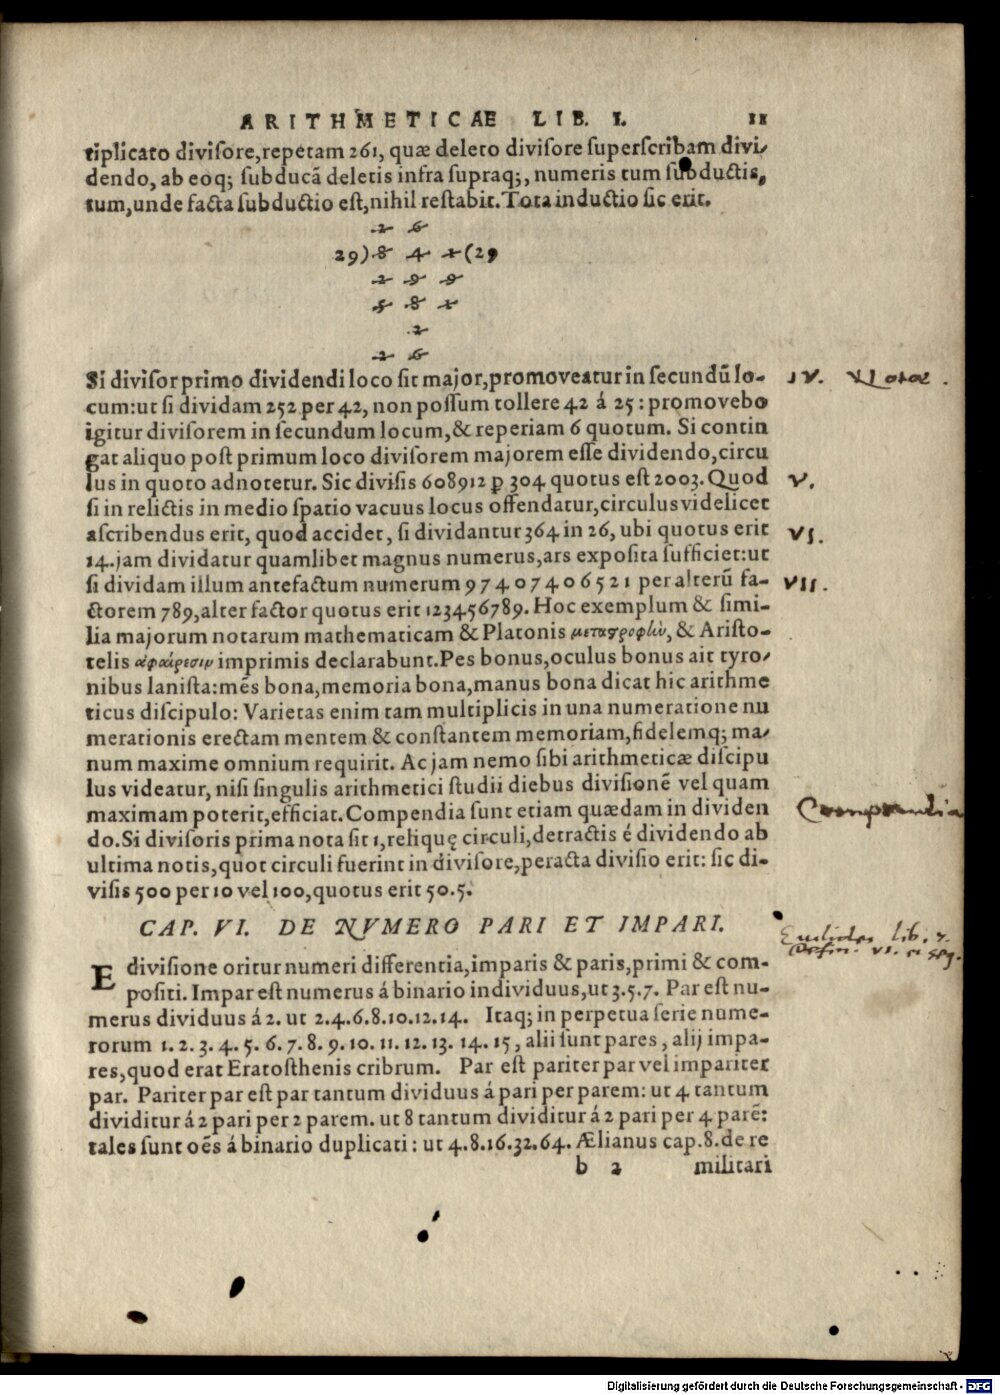 ARITHMETICAE LIB. I. 11
tiplicato divisore,repetam 261, quæ deleto divisore superscribam divi-
dendo, ab eoq; subducā deletis infra supraq;, numeris tum subductis,
tum,unde facta subductio est,nihil restabit.Tota inductio sic erit.
2 6
29)8 4 1(29
2 9 9
5 8 1
2
2 6
Si divisor primo dividendi loco sit major,promoveatur in secundū lo- IV.
cum:ut si dividam 252 per 42, non possum tollere 42 á 25 : promovebo
igitur divisorem in secundum locum,& reperiam 6 quotum. Si contin
gat aliquo post primum loco divisorem majorem esse dividendo,circu
lus in quoto adnotetur. Sic divisis 608912 p 304 quotus est 2003.Quod V.
si in relictis in medio spatio vacuus locus offendatur,circulus videlicet
ascribendus erit, quod accidet, si dividantur 364 in 26, ubi quotus erit VI.
14.jam dividatur quamlibet magnus numerus,ars exposita sufficiet:ut
si dividam illum antefactum numerum 97407406521 per alterū fa- VII.
ctorem 789,alter factor quotus erit 123456789. Hoc exemplum & simi-
lia majorum notarum mathematicam & Platonis μεταστροφὴν, & Aristo-
telis ἀφαίρεσιν imprimis declarabunt.Pes bonus,oculus bonus ait tyro-
nibus lanista:mēs bona,memoria bona,manus bona dicat hic arithme
ticus discipulo: Varietas enim tam multiplicis in una numeratione nu
merationis erectam mentem & constantem memoriam,fidelemq; ma-
num maxime omnium requirit. Ac jam nemo sibi arithmeticæ discipu
lus videatur, nisi singulis arithmetici studii diebus divisionē vel quam
maximam poterit,efficiat.Compendia sunt etiam quædam in dividen Compendia
do.Si divisoris prima nota sit 1,reliquę circuli,detractis é dividendo ab
ultima notis,quot circuli fuerint in divisore,peracta divisio erit: sic di-
visis 500 per 10 vel 100,quotus erit 50.5.
CAP. VI. DE NVMERO PARI ET IMPARI.
Euclides lib. 7.
Defin. VI.
E divisione oritur numeri differentia,imparis & paris,primi & com-
positi. Impar est numerus á binario individuus,ut 3.5.7. Par est nu-
merus dividuus á 2. ut 2.4.6.8.10.12.14. Itaq; in perpetua serie nume-
rorum 1.2.3.4.5.6.7.8.9.10.11.12.13.14.15, alii sunt pares, alij impa-
res,quod erat Eratosthenis cribrum. Par est pariter par vel impariter
par. Pariter par est par tantum dividuus á pari per parem: ut 4 tantum
dividitur á 2 pari per 2 parem. ut 8 tantum dividitur á 2 pari per 4 parē:
tales sunt oēs á binario duplicati: ut 4.8.16.32.64. Ælianus cap.8.de re
b 2 militari
Digitalisierung gefördert durch die Deutsche Forschungsgemeinschaft - DFG